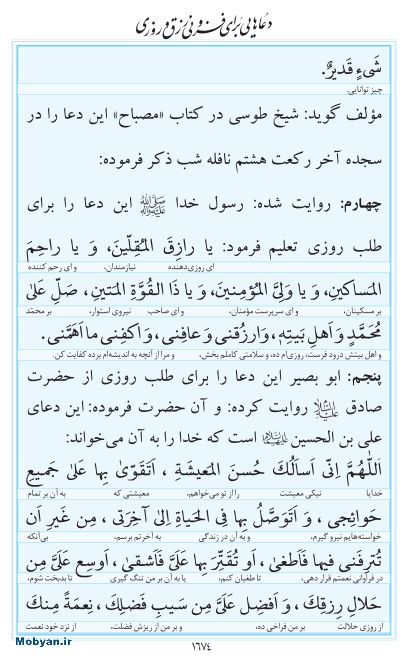 دعاهایی برای فزونی رزق و روزی
شَیْءٍ قَدیرٌ.
چیز توانایی.
مؤلف گوید: شیخ طوسی در کتاب «مصباح» این دعا را در
سجده آخر رکعت هشتم نافله شب ذکر فرموده:
چهارم: روایت شده: رسول خدا ﷺ این دعا را برای
طلب روزی تعلیم فرمود: یا رازِقَ الْمُقِلّینَ، وَ یا راحِمَ
ای روزی‌دهنده نیازمندان، و ای رحم کننده
الْمَساکینِ، وَ یا وَلِیَّ الْمُؤْمِنینَ، وَ یا ذَا الْقُوَّةِ الْمَتینِ، صَلِّ عَلیٰ
بر مسکینان، و ای سرپرست مؤمنان، و ای صاحب نیروی استوار، بر محمّد
مُحَمَّدٍ وَ اَهْلِ بَیْتِهِ، وَ ارْزُقْنی وَ عافِنی، وَ اکْفِنی ما اَهَمَّنی.
و اهل بیتش درود فرست، روزی‌ام ده، و سلامتی کاملم بخش، و مرا از آنچه به اندیشه‌ام برده کفایت کن.
پنجم: ابو بصیر این دعا را برای طلب روزی از حضرت
صادق علیه‌السلام روایت کرده: و آن حضرت فرموده: این دعای
علی بن الحسین علیهماالسلام است که خدا را به آن می‌خواند:
اَللّٰهُمَّ اِنّی اَسْاَلُکَ حُسْنَ الْمَعیشَةِ ، اَتَقَوّیٰ بِها عَلیٰ جَمیعِ
خدایا را از تو می‌خواهم، نیکی معیشت معیشتی که به آن بر تمام
حَوائِجی ، وَ اَتَوَصَّلُ بِها فِی الْحَیاةِ اِلیٰ آخِرَتی ، مِنْ غَیْرِ اَنْ
خواسته‌هایم نیرو گیرم، و به آن در زندگی به آخرتم برسم، بی‌آنکه
تُتْرِفَنی فیها فَاَطْغیٰ، اَوْ تُقَتِّرَ بِها عَلَیَّ فَاَشْقیٰ، اَوْسِعْ عَلَیَّ مِنْ
در فراوانی نعمتم قرار دهی، تا طغیان کنم، یا به آن بر من تنگ گیری تا بدبخت شوم،
حَلالِ رِزْقِکَ، وَ اَفْضِلْ عَلَیَّ مِنْ سَیْبِ فَضْلِکَ، نِعْمَةً مِنْکَ
از روزی حلالت بر من فراخی ده، و بر من از ریزش فضلت، از نزد خود نعمت
۱۶۷۴
Mobyan.ir